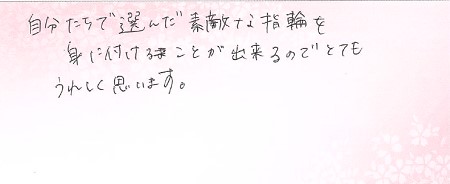 自分たちで選んだ素敵な指輪を
身に付けることが出来るのでとても
うれしく思います。